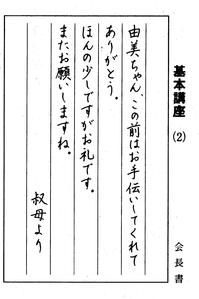 基本講座
(2)
会長書
由美ちゃん、この前はお手伝いしてくれて
ありがとう。
ほんの少しですがお礼です。
またお願いしますね。
叔母より